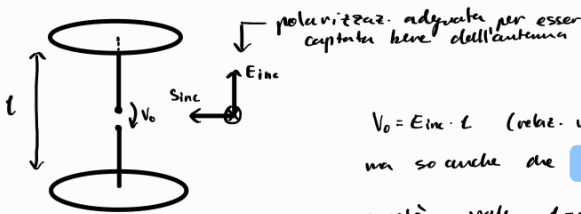 polarizzaz. adeguata per esser
captata bene dell'antenna
Einc
Sinc
l
V₀
V₀ = Einc · l (relaz.
ma so anche che